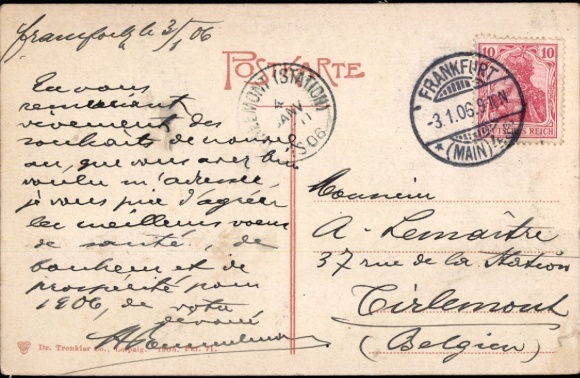 Francfort le 3/1 06
POSTKARTE
En vous
remerciant
vivement des
souhaits de nouvel
an, que vous avez bien
voulu m'adresser,
je vous prie d'agréer
les meilleurs voeux
de santé, de
bonheur et de
prospérité pour
1906, de votre
dévoué
TIRLEMONT (STATION)
4
JANV
11
1906
FRANKFURT
3.1.06.
(MAIN)
10
10
DEUTSCHES REICH
Monsieur
A. Lemaître
37 rue de la Station
Tirlemont
(Belgien)
Dr. Trenkler Co., Leipzig. 1905. Fkf. 71.